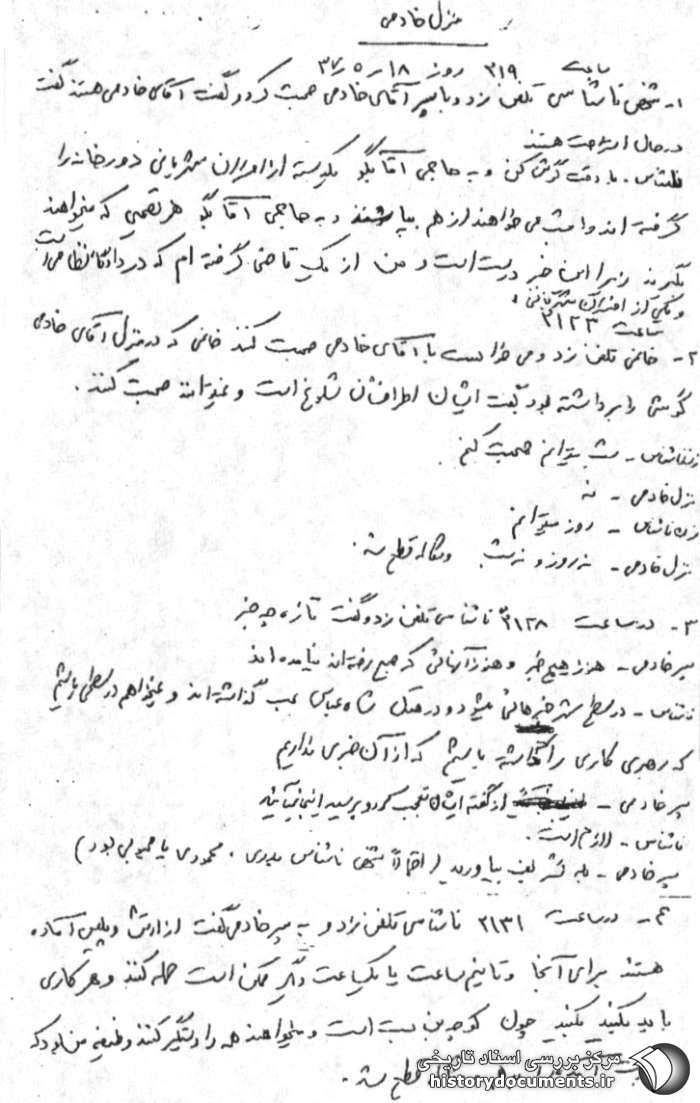 منزل خادمی
ساعت ۲۱۹ روز ۱۸ ر ۵ ر ۳۷
۱- شخص ناشناسی تلفن زد و با پسر آقای خادمی صحبت کرد و گفت آقای خادمی هستند گفت
در حال استراحت هستند
ناشناس - با دقت گوش کن و به حاجی آقا بگو یکدسته از افسران شهربانی زورخانه را
گرفته اند و امشب می خواهند از هم بپاشند و به حاجی آقا بگو هر تصمیمی که میخواهند
بگیرند زیرا این خبر درست است و من از یک قاضی گرفته ام که در دادگاه نظامی است
و یکی از افسران شهربانی
ساعت ۲۱۲۳
۲- خانمی تلفن زد و می خواست با آقای خادمی صحبت کند خانمی که در منزل آقای خادمی
گوشی را برداشته بود گفت ایشان اطرافشان شلوغ است و نمیتوانند صحبت کنند.
زن ناشناس - شب میتوانم صحبت کنم
منزل خادمی - نه
زن ناشناس - روز میتوانم
منزل خادمی - نه روز و نه شب و مکالمه قطع شد.
۳- در ساعت ۲۱۲۸ ناشناسی تلفن زد و گفت تازه چه خبر
پسر خادمی - هنوز هیچ خبر و هنوز آنهائی که صبح رفته اند نیامده اند
ناشناس - در سطح شهر خبرهائی میشود و در هتل شاه عباس بمب گذاشته اند و نمیخواهم در سطحی باشیم
که رهبری کاری را گذاشته باشیم که از آن خبری نداریم
پسر خادمی - از گفته ایشان تعجب کرد و پرسید اینجا میآئید
ناشناس - لازم است.
پسر خادمی - بله تشریف بیاورید (احتمالاً شخص ناشناس، محمودی یا بود)
۴- در ساعت ۲۱۳۱ ناشناسی تلفن زد و به پسر خادمی گفت از ارتش و پلیس آماده
هستند برای آنجا و تا نیم ساعت یا یکساعت دیگر ممکن است حمله کنند و هر کاری
باید بکنید بکنید چون کوچه بن بست است و میخواهند همه را دستگیر کنند وظیفه من بود که
قطع شد.
مرکز بررسی اسناد تاریخی
historydocuments.ir